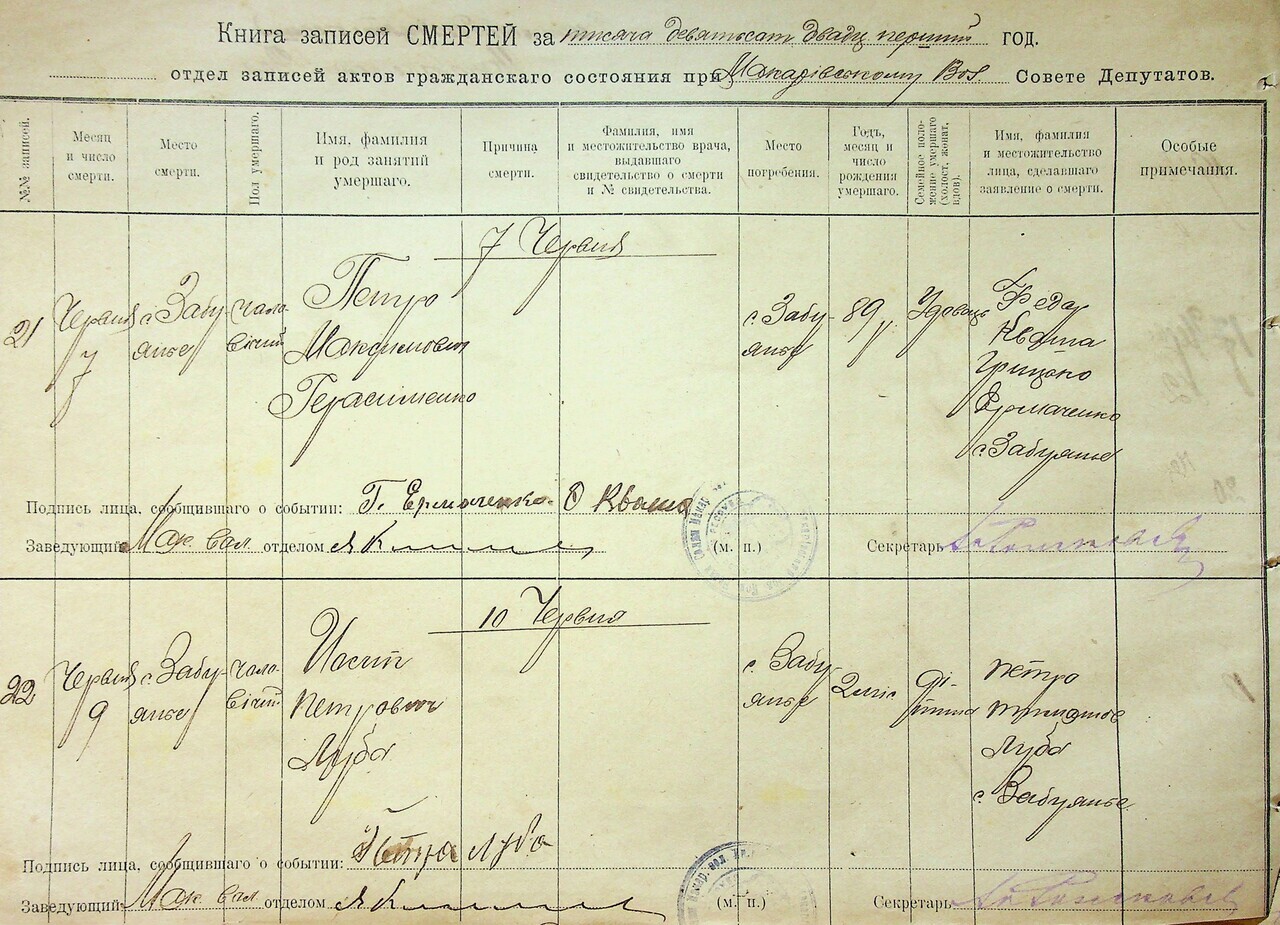 Книга записей СМЕРТЕЙ за тисяча девятьсот двадц. перший год.
отдел записей актов гражданскаго состояния при Макарівському Вол. Совете Депутатов.
№№ записей.
Месяц и число смерти.
Место смерти.
Пол умершаго.
Имя, фамилия и род занятий умершаго.
Причина смерти.
Фамилия, имя и местожительство врача, выдавшаго свидетельство о смерти и № свидетельства.
Место погребения.
Годъ, месяц и число рождения умершаго.
Семейное положение умершаго (холост, женат, вдов).
Имя, фамилия и местожительство лица, сделавшаго заявление о смерти.
Особые примечания.
7 Червня
21
Червня 7
с. Забуянье
чоловічий
Петро
Максимович
Герасименко
с. Забуянье
89 р.
Удовець
Федор
Кваша
Грицько
Ермаченко
с. Забуянье
Подпись лица, сообщившаго о событии: Г. Ермаченко Ѳ Кваша
Заведующий Мак Вол. отделом
(м. п.)
Секретарь
10 Червня
22
Червня 9
с. Забуянье
чоловічий
Иосип
Петрович
Луба
с. Забуянье
2 міс
дітина
Петро
Луба
с. Забуянье
Подпись лица, сообщившаго о событии: Петро Луба
Заведующий Мак. Вол. отделом
(м. п.)
Секретарь